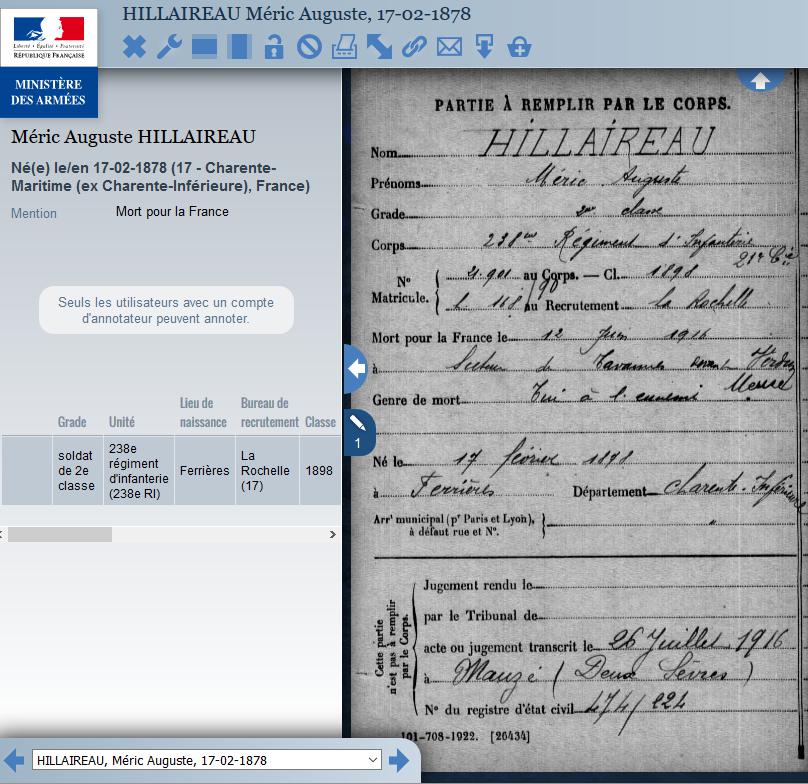 HILLAIREAU Méric Auguste, 17-02-1878
Liberté • Égalité • Fraternité
RÉPUBLIQUE FRANÇAISE
MINISTÈRE
DES ARMÉES
Méric Auguste HILLAIREAU
Né(e) le/en 17-02-1878 (17 - Charente-
Maritime (ex Charente-Inférieure), France)
Mention Mort pour la France
Seuls les utilisateurs avec un compte
d'annotateur peuvent annoter.
Grade Unité Lieu de naissance Bureau de recrutement Classe
soldat de 2e classe 238e régiment d'infanterie (238e RI) Ferrières La Rochelle (17) 1898
HILLAIREAU, Méric Auguste, 17-02-1878
1
PARTIE À REMPLIR PAR LE CORPS.
Nom HILLAIREAU
Prénoms Méric Auguste
Grade 2me classe
Corps 238me Régiment d'Infanterie
21e Cie
N° Matricule.
21.901 au Corps. — Cl. 1898
au Recrutement La Rochelle
Mort pour la France le 12 Juin 1916
à Secteur de Tavannes devant Verdun
Meuse
Genre de mort Tué à l'ennemi
Né le 17 février 1878
à Ferrières Département Charente-Inférieure
Arrt municipal (pr Paris et Lyon),
à défaut rue et N°. "
Cette partie
n'est pas à remplir
par le Corps.
Jugement rendu le
par le Tribunal de
acte ou jugement transcrit le 26 Juillet 1916
à Mauzé (Deux Sèvres)
N° du registre d'état civil 474/224
101-708-1922. [26434]